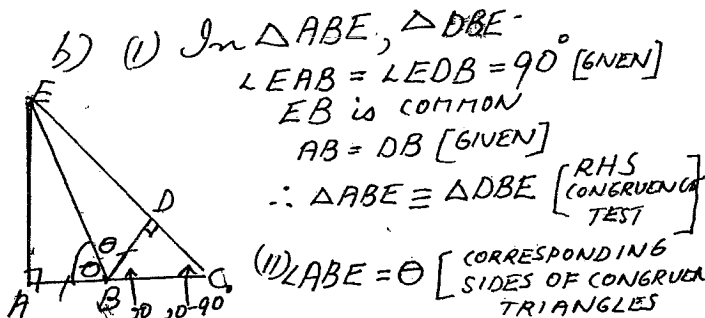 b) (i) In △ABE, △DBE-
∠EAB = ∠EDB = 90° [GIVEN]
EB is COMMON
AB = DB [GIVEN]
∴ △ABE ≡ △DBE [RHS
CONGRUENCE
TEST]
(II) ∠ABE = θ [CORRESPONDING
SIDES OF CONGRUEN
TRIANGLES
E
D
θ
θ
A
B
C